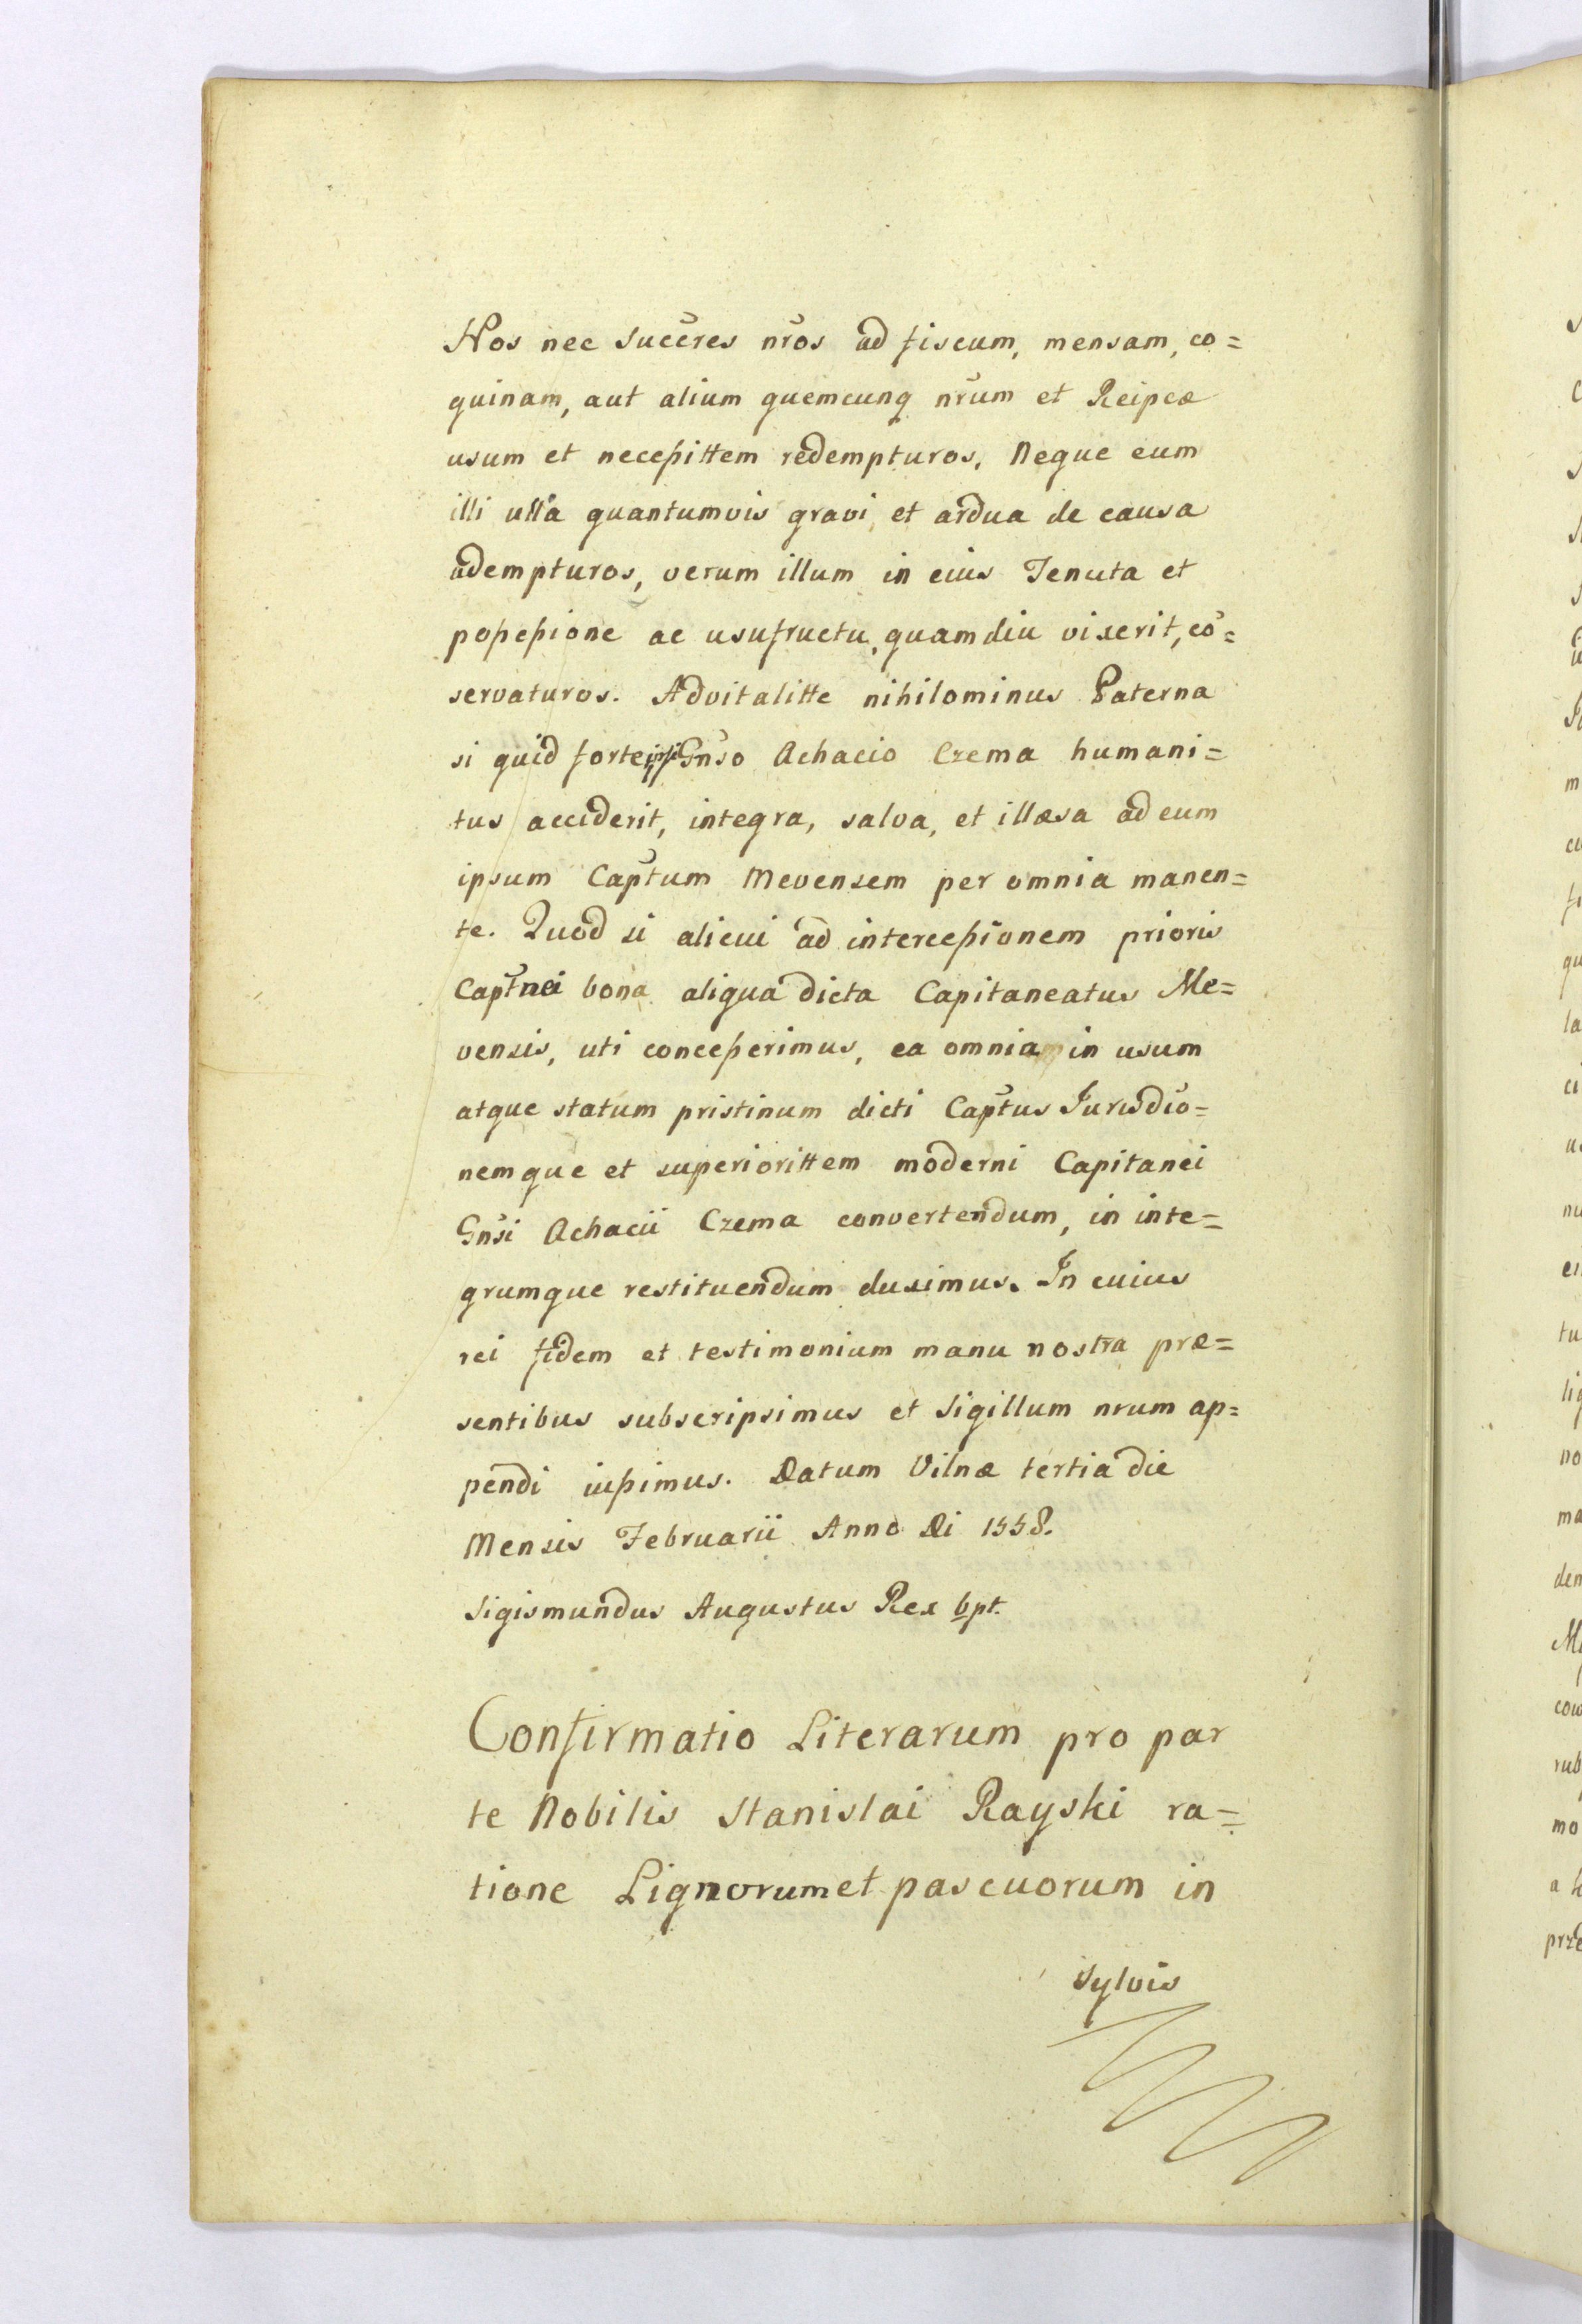 Nos nec succres nros ad fiscum, mensam, co=
quinam, aut alium quemcunq nrum et Reipcæ
usum et necessittem redempturos, Neque eum
illi ulla quantumvis gravi et ardua de causa
adempturos, verum illum in eius Tenuta et
possessione ac usufructu, quamdiu vixerit, co=
servaturos. Advitalitte nihilominus Paterna
si quid forte ipsi Gnso Achacio Czema humani=
tus acciderit, integra, salva, et illæsa ad eum
ipsum Captum Mevensem per omnia manen=
te. Quod si alicui ad intercessionem prioris
Captnei bona aliqua dicta Capitaneatus Me=
vensis, uti concesserimus, ea omnia in usum
atque statum pristinum dicti Captus Jurisdio=
nemque et superiorittem moderni Capitanei
Gnsi Achacii Czema convertendum, in inte=
grumque restituendum duximus. In cuius
rei fidem et testimonium manu nostra præ=
sentibus subscripsimus et Sigillum nrum ap=
pendi iussimus. Datum Vilnæ tertia die
Mensis Februarii Anno Di 1558.
Sigismundus Augustus Rex sspt.
Confirmatio Literarum pro par
te Nobilis Stanislai Rayski ra=
tione Lignorum et pascuorum in
sylvis